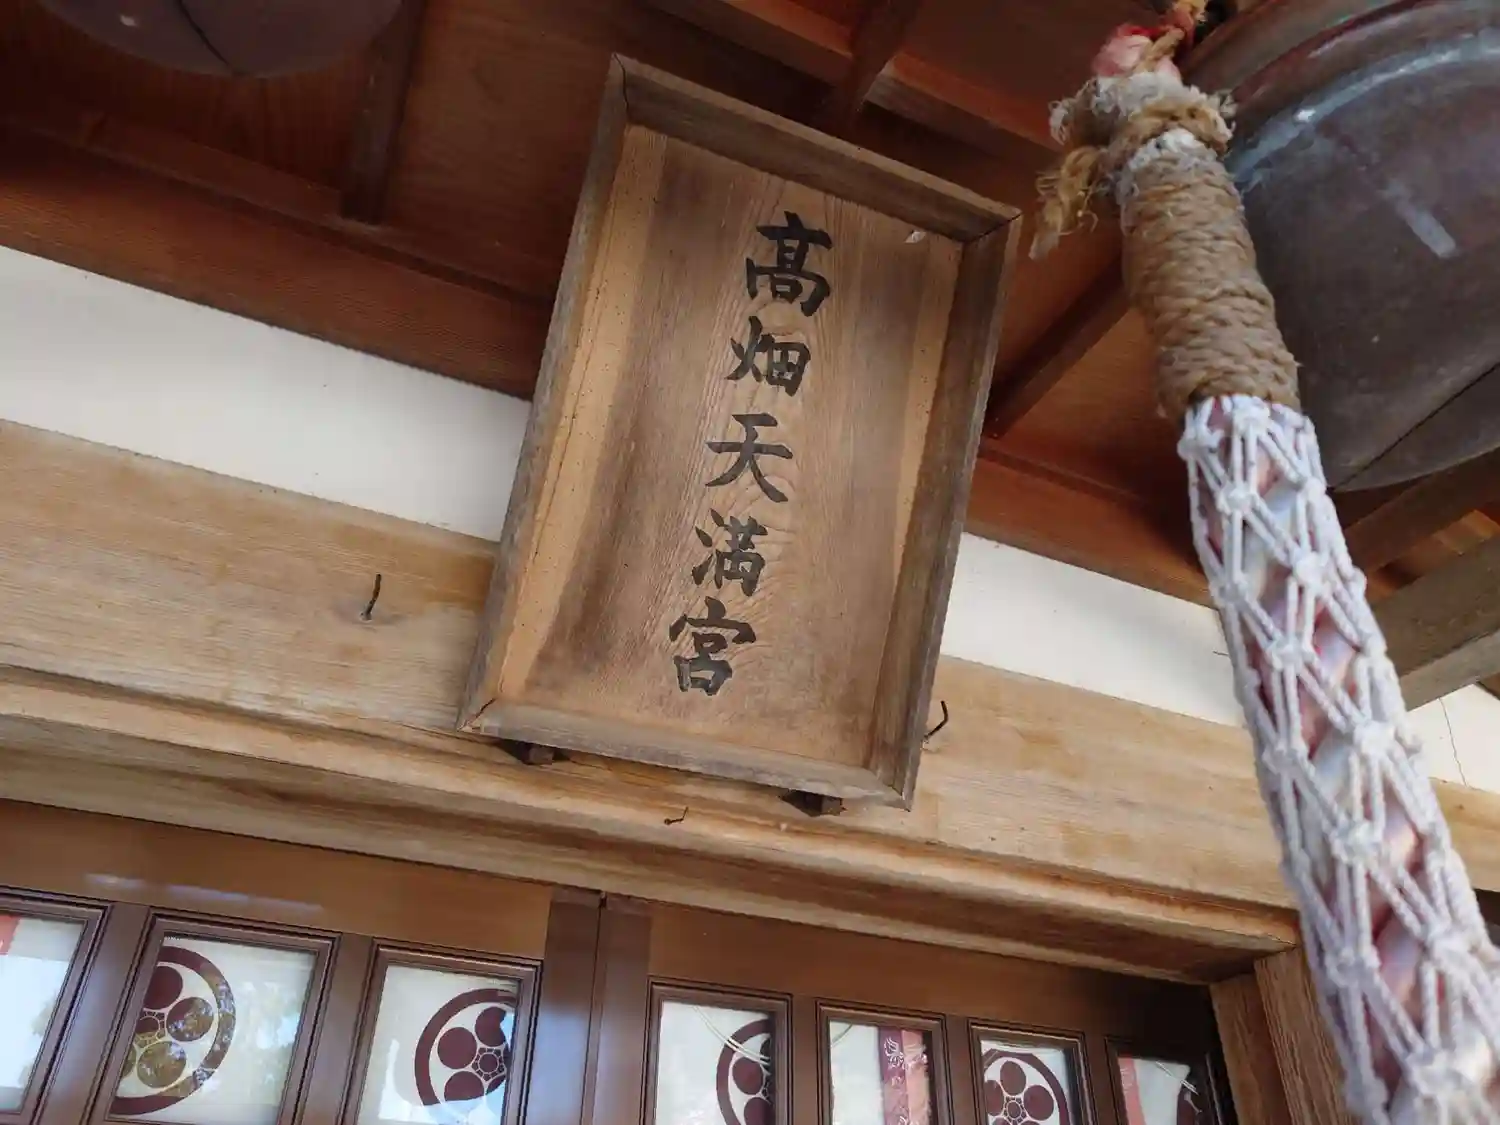 髙畑天満宮